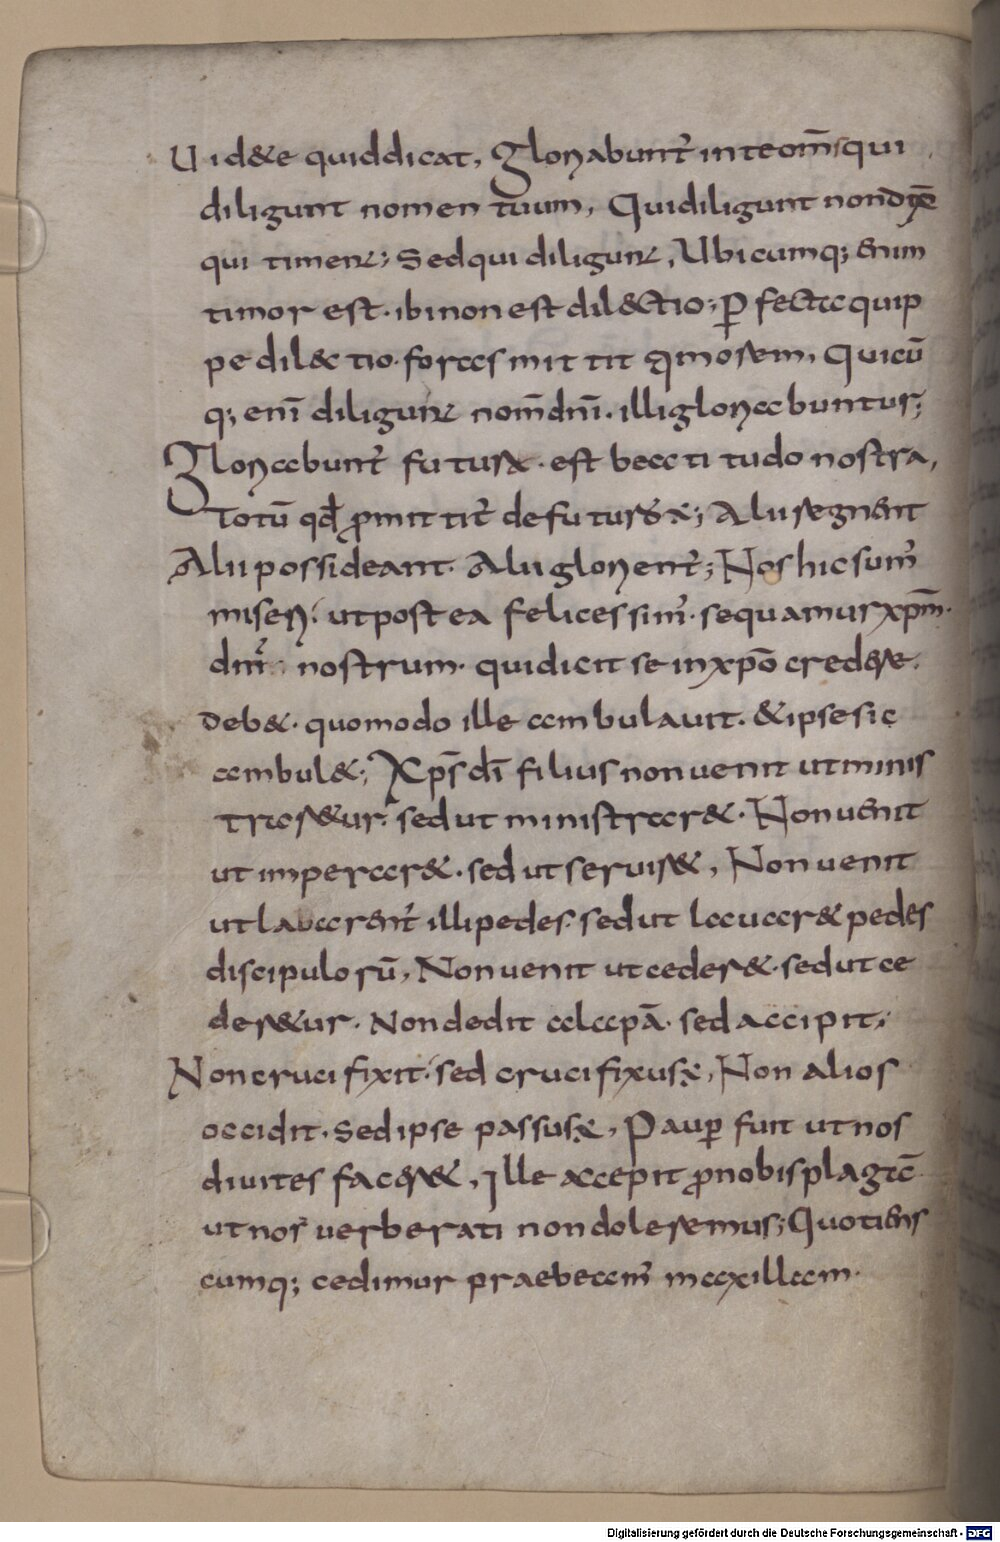 Uid&e quiddicat, Gloriabunt̄ inteom̄s qui
diligunt nomen tuum, Qui diligunt non dix̄
qui timent; Sed qui diligunt, Ubicumq; enim
timor est · ibi non est dil&ctio; P̱fecta quip
pe dil&ctio · foras mittit timorem, Quicū
q; enī diligunt nom̄ dnī · illi gloriabuntur;
Gloriabunt̄ futura · est beatitudo nostra,
Totū qd̄ p̱mittit̄ de futuro ÷; Alii regnent
Alii possideant · Alii glorient̄; Nos hic sum̄
miseri · ut postea felices sim̄ · sequamur xp̄m ·
dn̄m nostrum · qui dicit se in xp̄o credere
deb& · quomodo ille ambulauit · & ipse sic
ambul&; Xp̄s dī filius non uenit ut minis
trar&ur · sed ut ministrar& · Non uenit
ut imperar& · sed ut seruir&, Non uenit
ut lauarent̄ illi pedes · sed ut lauar& pedes
discipulorū, Non uenit ut ceder& · sed ut ce
der&ur · Non dedit alapā · sed accipit;
Non crucifixit · sed crucifixus ÷, Non alios
occidit · Sed ipse passus ÷, Paup̱ fuit ut nos
diuites facer&, Ille accepit p̱ nobis plagā
ut nos uerberati non doleremus; Quotiens
cumq; cedimur praebeam̄ maxillam ·
Digitalisierung gefördert durch die Deutsche Forschungsgemeinschaft - DFG